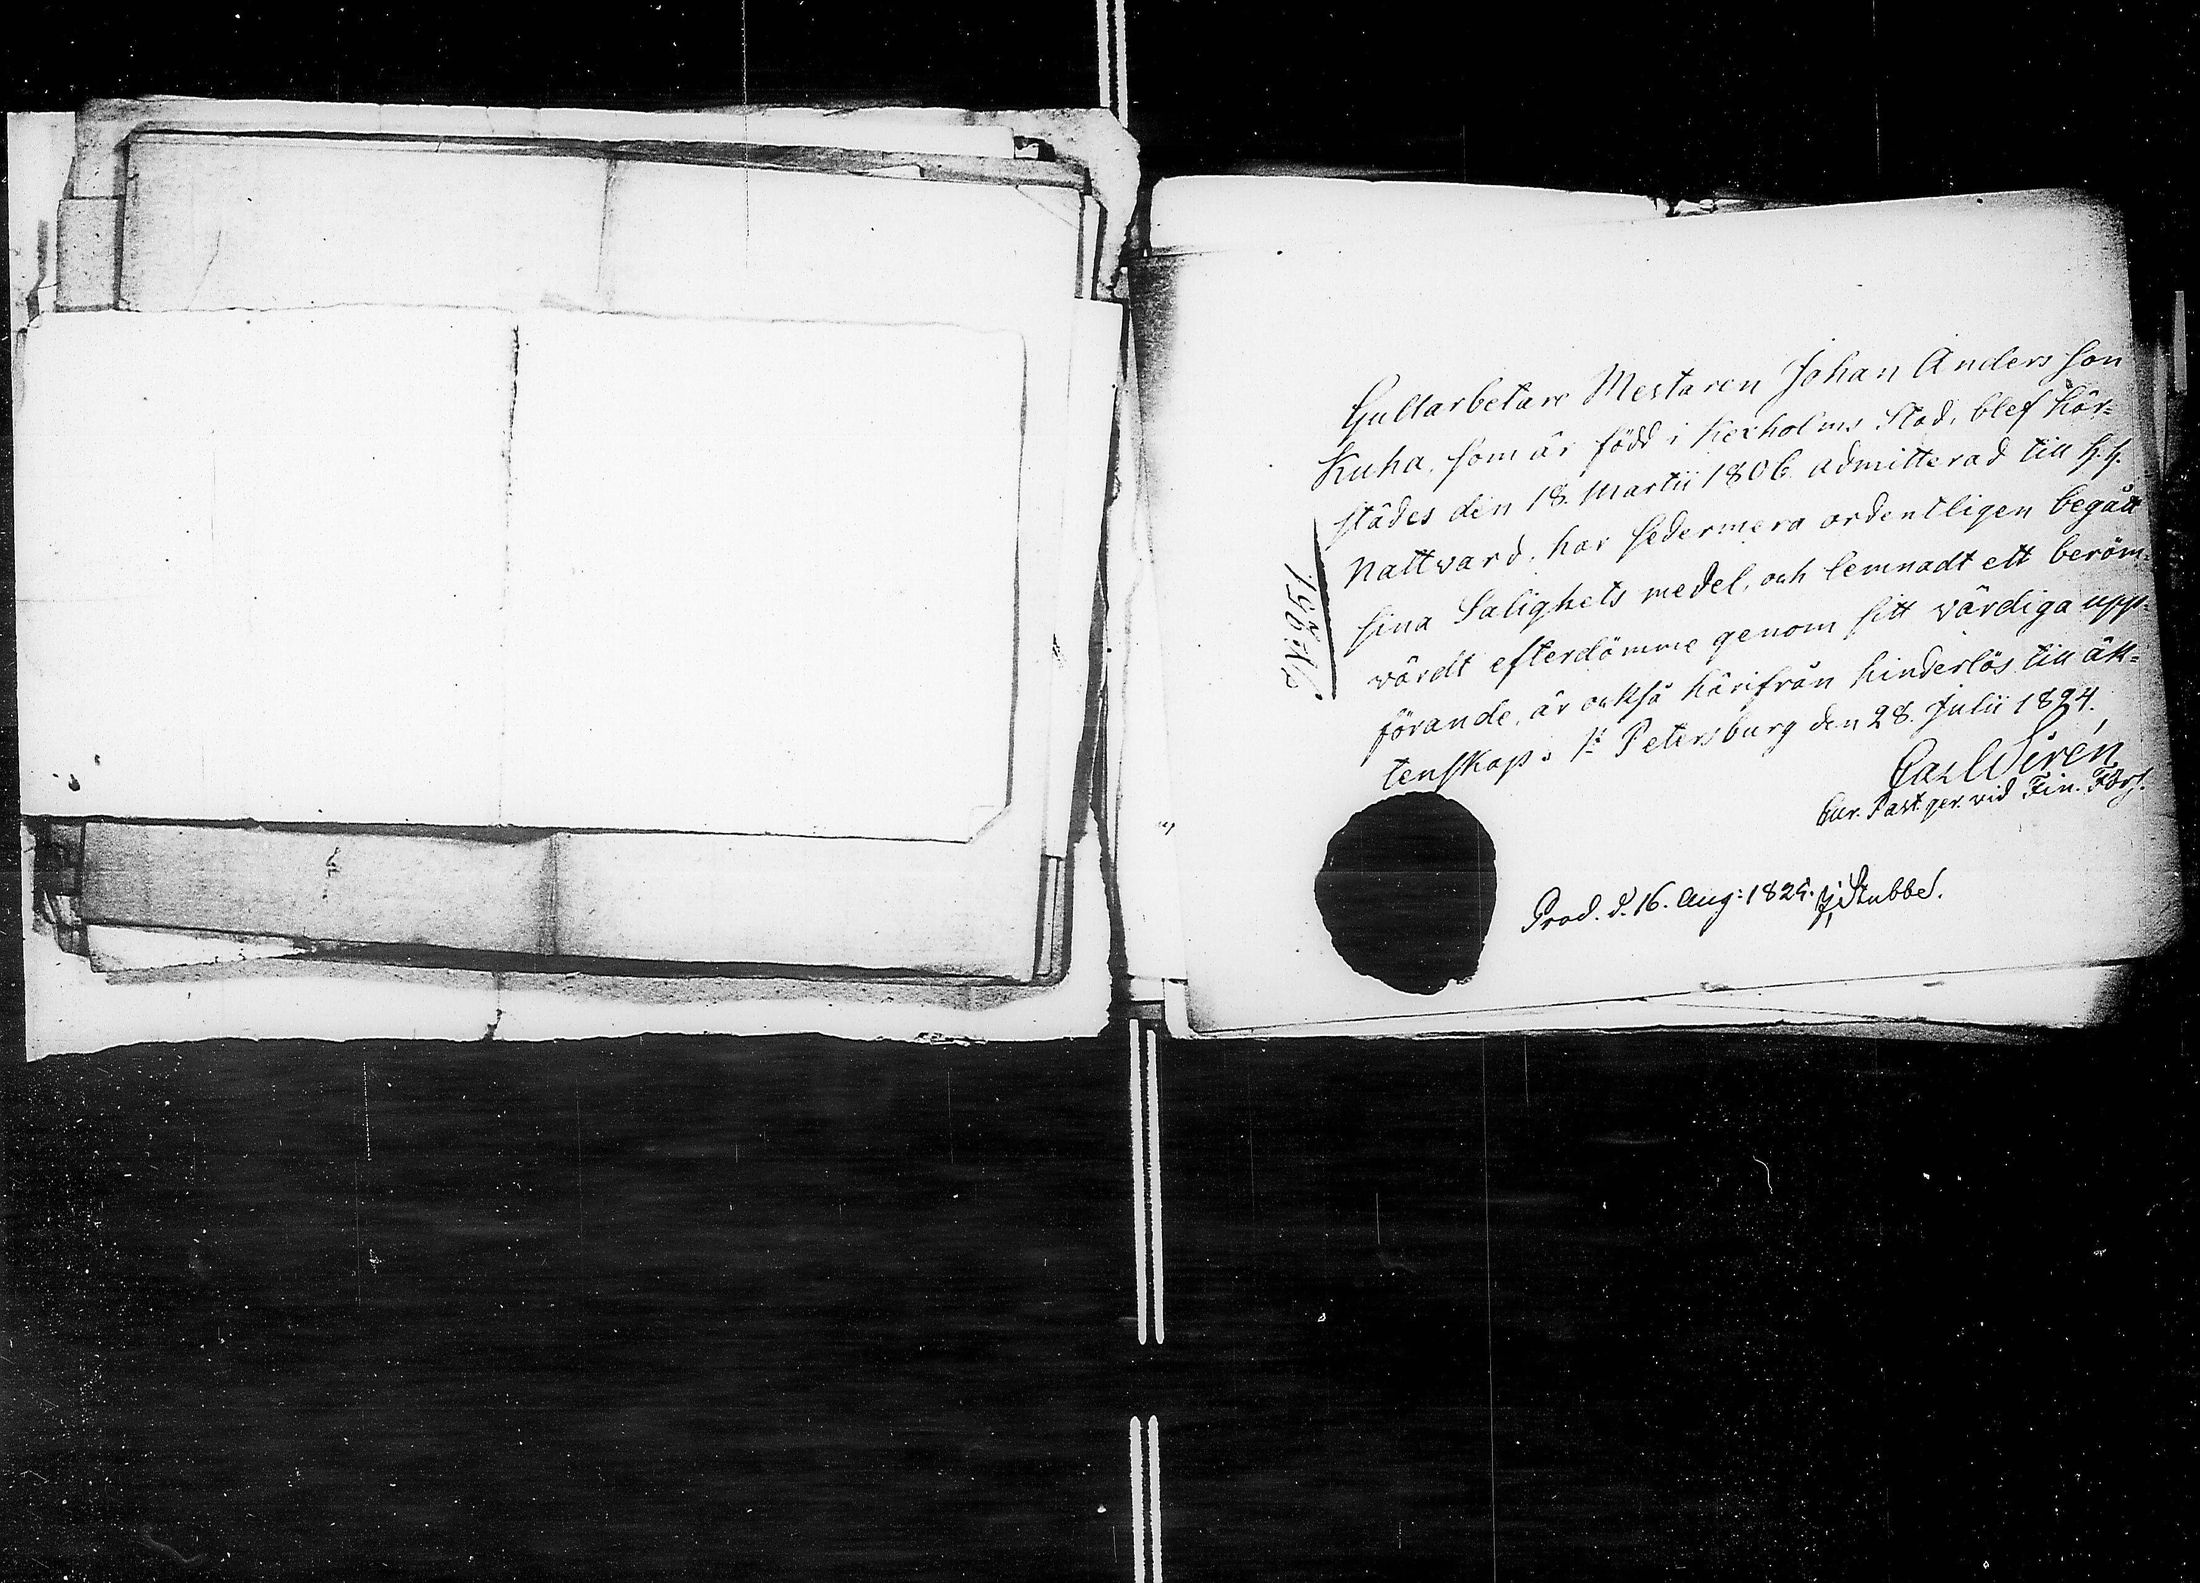 Gullarbetare Mestaren Johan Andersson
Kuha, som är född i Kexholms Stad, blef här=
städes den 18. Martii 1806 admitterad till H. H.
Nattvard, har sedermera ordentligen begått
sina Salighets medel, och lemnadt ett beröm=
värdt efterdömme genom sitt värdiga upp=
förande, är också härifrån hinderlös till äk=
tenskap. St Petersburg den 28. Julii 1824.
Carl Sirén
Cur. Past. ger. vid Fin. Förs.
Prod. d. 16. Aug: 1824. Stubbe.